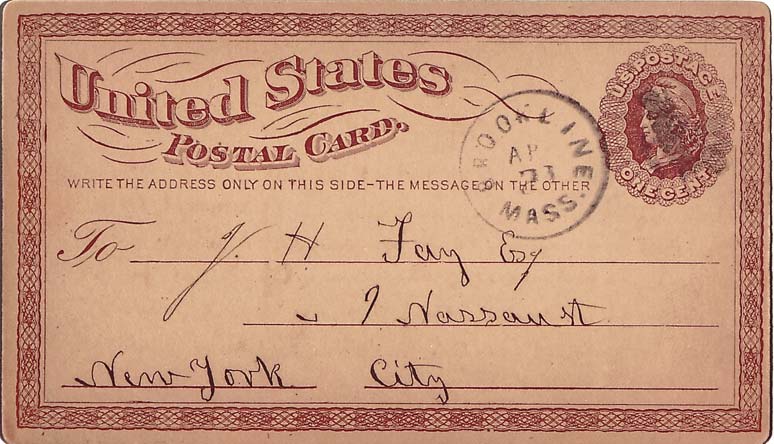 United States
POSTAL CARD.
U.S. POSTAGE
ONE CENT
BROOKLINE
MASS.
WRITE THE ADDRESS ONLY ON THIS SIDE-THE MESSAGE ON THE OTHER
To J. H Fay Esq
9 Nassau st
New York City